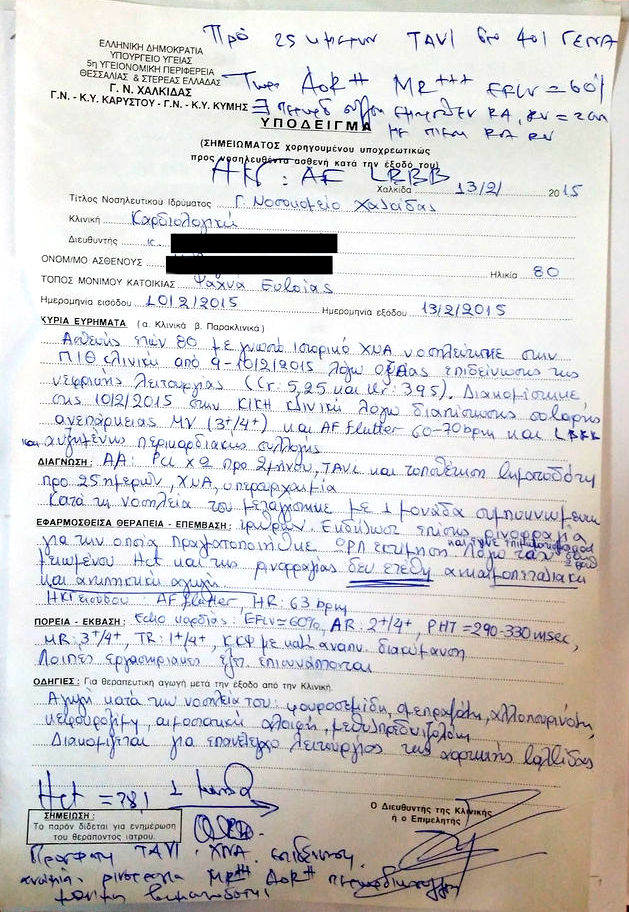 Πρό 25 ημερών TAVI στο 401 ΓΣΝΑ
ΕΛΛΗΝΙΚΗ ΔΗΜΟΚΡΑΤΙΑ
ΥΠΟΥΡΓΕΙΟ ΥΓΕΙΑΣ
5η ΥΓΕΙΟΝΟΜΙΚΗ ΠΕΡΙΦΕΡΕΙΑ
ΘΕΣΣΑΛΙΑΣ & ΣΤΕΡΕΑΣ ΕΛΛΑΔΑΣ
Γ. Ν. ΧΑΛΚΙΔΑΣ
Γ.Ν. - Κ.Υ. ΚΑΡΥΣΤΟΥ - Γ.Ν. - Κ.Υ. ΚΥΜΗΣ
Τώρα AoR++ MR+++ EFLV = 60%
RA, RV = 2cm
ΥΠΟΔΕΙΓΜΑ
RA RV
(ΣΗΜΕΙΩΜΑΤΟΣ χορηγουμένου υποχρεωτικώς
προς νοσηλευθέντα ασθενή κατά την έξοδό του)
ΗΚΓ: AF LBBB
Χαλκίδα 13/2/ 2015
Τίτλος Νοσηλευτικού Ιδρύματος Γ. Νοσοκομείο Χαλκίδας
Κλινική Καρδιολογική
Διευθυντής κ.
ΟΝΟΜ/ΜΟ ΑΣΘΕΝΟΥΣ Ηλικία 80
ΤΟΠΟΣ ΜΟΝΙΜΟΥ ΚΑΤΟΙΚΙΑΣ Ψαχνά Ευβοίας
Ημερομηνία εισόδου 10/2/2015 Ημερομηνία εξόδου 13/2/2015
ΚΥΡΙΑ ΕΥΡΗΜΑΤΑ (α. Κλινικά β. Παρακλινικά)
Ασθενής ετών 80 με γνωστό ιστορικό ΧΝΑ νοσηλεύτηκε στην
ΠΠΘ κλινική από 9-10/2/2015 λόγω οξείας επιδείνωσης της
νεφρικής λειτουργίας (Cr: 5,25 και Ur: 395). Διακομίστηκε
στις 10/2/2015 στην ΚΓΚΗ κλινική λόγω διαπίστωσης σοβαρής
ανεπάρκειας MV (3+/4+) και AFflutter 60-70bpm και LBBB
και αυξημένης περικαρδιακής συλλογής
ΔΙΑΓΝΩΣΗ: ΑΑ: PCI x 2 προ 2μήνου, TAVI και τοποθέτηση βηματοδότη
προ 25 ημερών, ΧΝΑ, υπερουριχαιμία
Κατά τη νοσηλεία του μεταγγίστηκε με 1 μονάδα συμπυκνωμένων
ΕΦΑΡΜΟΣΘΕΙΣΑ ΘΕΡΑΠΕΙΑ - ΕΠΕΜΒΑΣΗ: ερυθρών. Εκδήλωσε επίσης ρινορραγία
για την οποία πραγματοποιήθηκε ΩΡΛ εκτίμηση. Λόγω του
μειωμένου Hct και της ρινορραγίας δεν ετέθη αντιαιμοπεταλιακή
και αντιπηκτική αγωγή
ΗΚΓ εισόδου: AFflutter, HR: 63 bpm
ΠΟΡΕΙΑ - ΕΚΒΑΣΗ: Echo καρδίας: EFLV≈60%, AR: 2+/4+, PHT=290-330msec,
MR: 3+/4+, TR: 1+/4+, ΚΚΦ με κατ' αναπν. διακύμανση
Λοιπές εργαστηριακές εξετ. επισυνάπτονται
ΟΔΗΓΙΕΣ: Για θεραπευτική αγωγή μετά την έξοδο από την Κλινική.
Αγωγή κατά την νοσηλεία του: φουροσεμίδη, ομεπραζόλη, αλλοπουρινόλη,
κεφουροξίμη, αιμοστατική αλοιφή, μεθυλπρεδνιζολόνη
Διακομίζεται για επανέλεγχο λειτουργίας της αορτικής βαλβίδας
Hct = 28,1
ΣΗΜΕΙΩΣΗ:
Το παρόν δίδεται για ενημέρωση
του θεράποντος ιατρού.
Ο Διευθυντής της Κλινικής
ή ο Επιμελητής
Πρόσφατη TAVI. ΧΝΑ. επιδείνωση
αναιμία. ρινορραγία MR+++ AoR++
μόνιμη βηματοδότηση